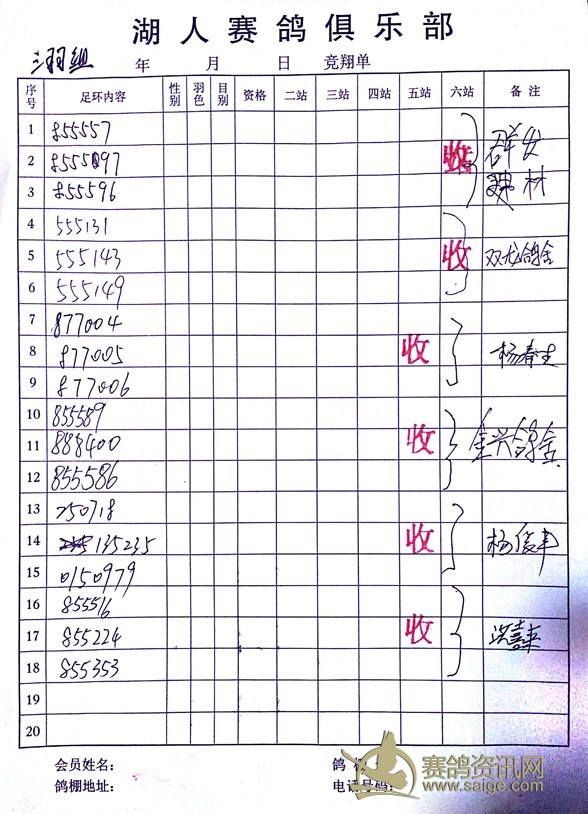 湖人赛鸽俱乐部
三羽组 年 月 日 竞翔单
序号 足环内容 性别 羽色 目别 资格 二站 三站 四站 五站 六站 备注
1 855557
2 855597 收 群发
3 855596 林
4 555131
5 555143 收 双龙鸽舍
6 555149
7 877004
8 877005 收 杨春生
9 877006
10 855589
11 888400 收 兴鸽舍
12 855586
13 250718
14 135235 收 杨俊丰
15 0150979
16 855516
17 855224 收
18 855353
19
20
会员姓名: 鸽
鸽棚地址: 电话号码:
赛鸽资讯网
www.saige.com